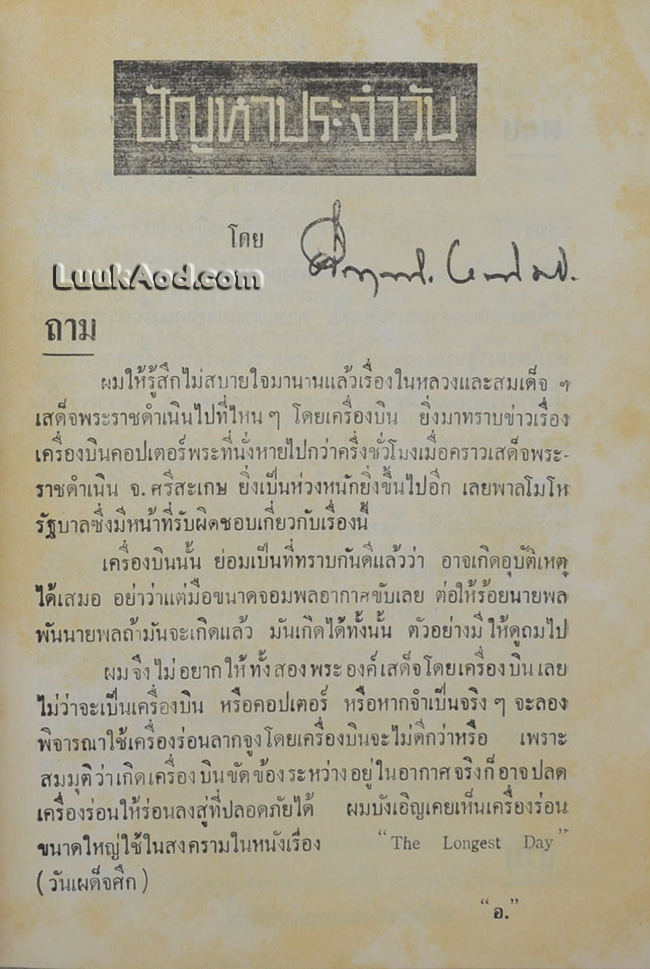 ปัญหาประจำวัน
โดย
LuukAod.com
ถาม
ผมให้รู้สึกไม่สบายใจมานานแล้วเรื่องในหลวงและสมเด็จ ๆ
เสด็จพระราชดำเนินไปที่ไหน ๆ โดยเครื่องบิน ยิ่งมาทราบข่าวเรื่อง
เครื่องบินคอปเตอร์พระที่นั่งหายไปกว่าครึ่งชั่วโมงเมื่อคราวเสด็จพระ-
ราชดำเนิน จ. ศรีสะเกษ ยิ่งเป็นห่วงหนักยิ่งขึ้นไปอีก เลยพาลโมโห
รัฐบาลซึ่งมีหน้าที่รับผิดชอบเกี่ยวกับเรื่องนี้
เครื่องบินนั้น ย่อมเป็นที่ทราบกันดีแล้วว่า อาจเกิดอุบัติเหตุ
ได้เสมอ อย่าว่าแต่มือขนาดจอมพลอากาศขับเลย ต่อให้ร้อยนายพล
พันนายพลถ้ามันจะเกิดแล้ว มันเกิดได้ทั้งนั้น ตัวอย่างมีให้ดูถมไป
ผมจึงไม่อยากให้ทั้งสองพระองค์เสด็จโดยเครื่องบินเลย
ไม่ว่าจะเป็นเครื่องบิน หรือคอปเตอร์ หรือหากจำเป็นจริง ๆ จะลอง
พิจารณาใช้เครื่องร่อนลากจูงโดยเครื่องบินจะไม่ดีกว่าหรือ เพราะ
สมมุติว่าเกิดเครื่องบินขัดข้องระหว่างอยู่ในอากาศจริงก็อาจปลด
เครื่องร่อนให้ร่อนลงสู่ที่ปลอดภัยได้ ผมบังเอิญเคยเห็นเครื่องร่อน
ขนาดใหญ่ใช้ในสงครามในหนังเรื่อง "The Longest Day"
(วันเผด็จศึก)
"อ."